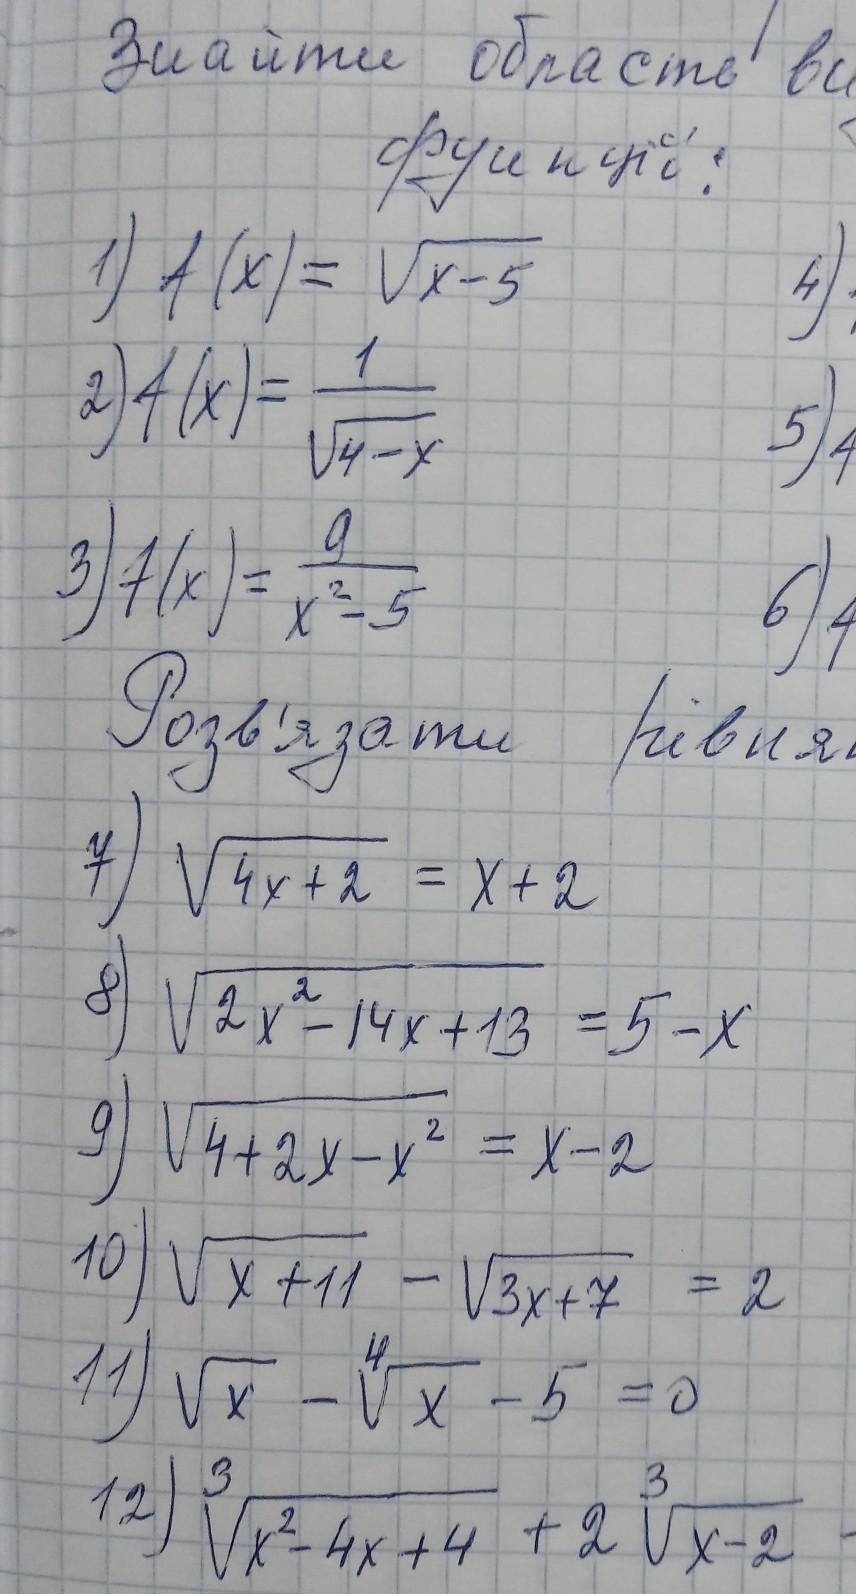 Знайти область
функції:
1) f(x) = √(x-5)
4)
2) f(x) = 1/√(4-x)
5)
3) f(x) = 9/(x²-5)
6)
Розв'язати рівня
7) √(4x+2) = x+2
8) √(2x²-14x+13) = 5-x
9) √(4+2x-x²) = x-2
10) √(x+11) - √(3x+7) = 2
11) √x - ⁴√x - 5 = 0
12) ³√(x²-4x+4) + 2 ³√(x-2) -